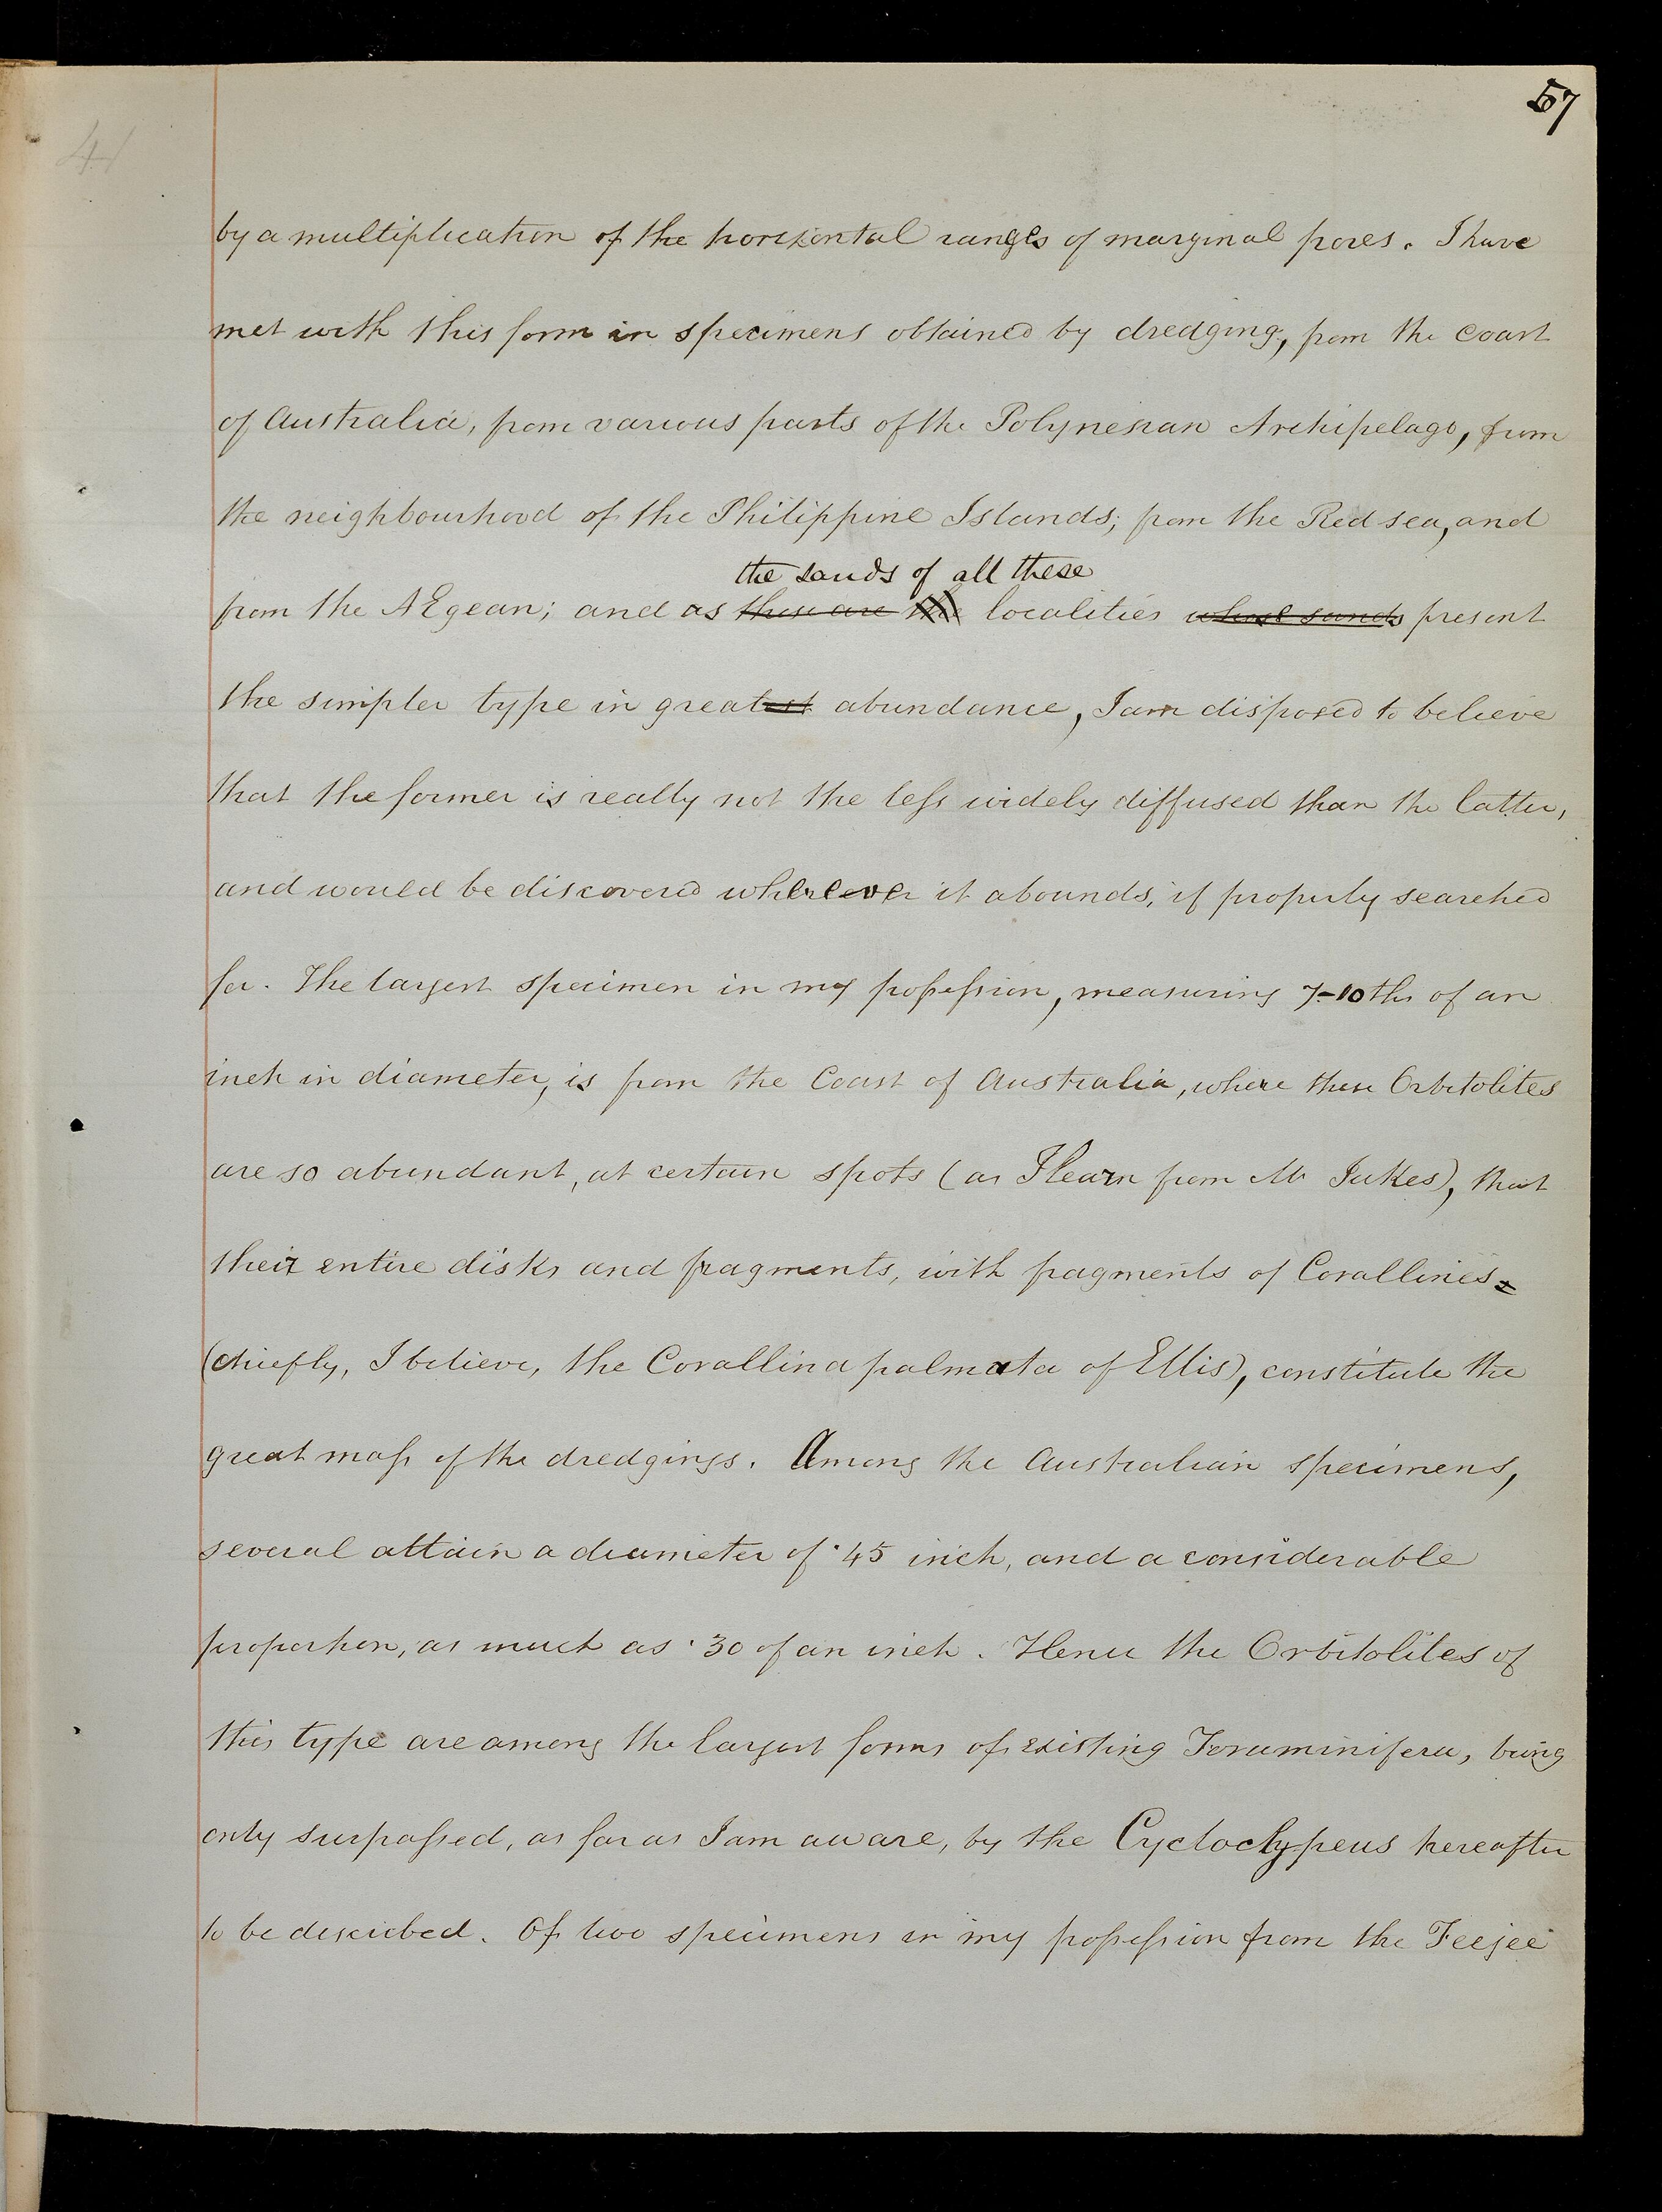 57
41
by a multiplication of the horizontal ranges of marginal pores. I have
met with this form in specimens obtained by dredging, from the coast
of Australia, from various parts of the Polynesian Archipelago, from
the neighbourhood of the Philippine Islands; from the Red sea, and
the sands of all these
from the AEgean; and as these are the localities whose sands present
the simpler type in greatest abundance, I am disposed to believe
that the former is really not the less widely diffused than the latter,
and would be discovered wherever it abounds, if properly searched
for. The largest specimen in my possession, measuring 7-10ths of an
inch in diameter, is from the Coast of Australia, where these Orbitolites
are so abundant, at certain spots (as I learn from Mr Jukes), that
their entire disks and fragments, with fragments of Corallines
(chiefly, I believe, the Corallina palmata of Ellis), constitute the
great mass of the dredgings. Among the Australian specimens,
several attain a diameter of ·45 inch, and a considerable
proportion, as much as ·30 of an inch. Hence the Orbitolites of
this type are among the largest forms of existing Foraminifera, being
only surpassed, as far as I am aware, by the Cycloclypeus hereafter
to be described. Of two specimens in my possession from the Feejee